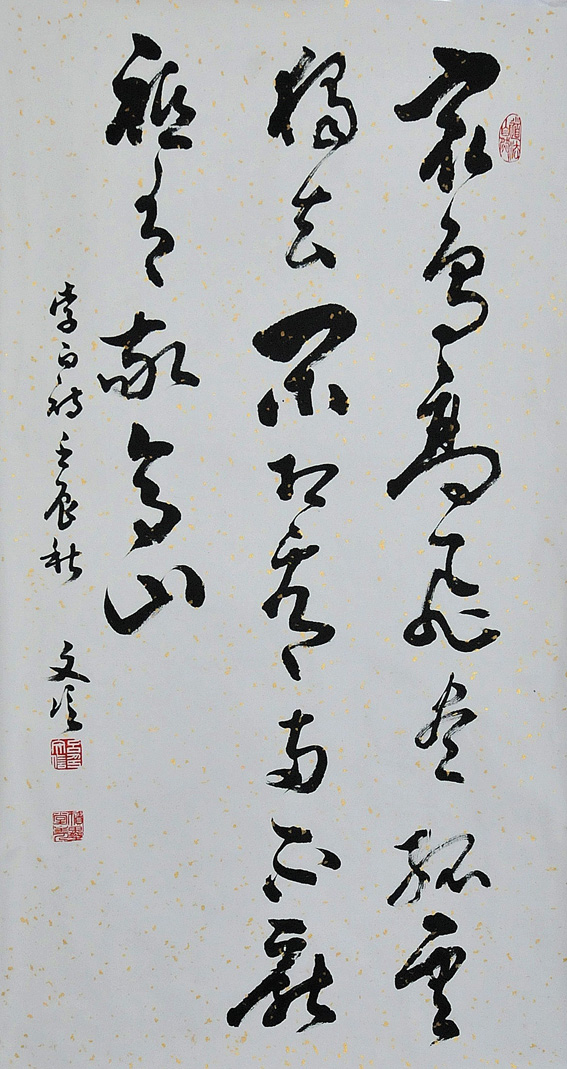 眾鳥高飛盡孤雲
獨去閑相看兩不厭
祗有敬亭山
李白詩壬辰秋
文信